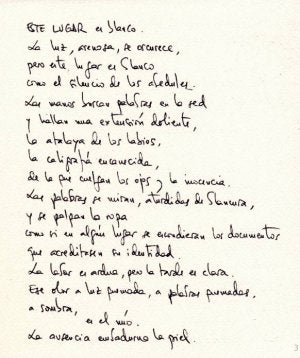 ESTE LUGAR es blanco.
La luz, arenosa, se oscurece,
pero este lugar es blanco
como el silencio de los abedules.
Las manos buscan palabras en la sed
y hallan una extensión doliente,
la atalaya de los labios,
la caligrafía encanecida,
de la que cuelgan los ojos y la inocencia.
Las palabras se miran, aturdidas de blancura,
y se palpan la ropa
como si en algún lugar se escondieran los documentos
que acreditasen su identidad.
La labor es ardua, pero la tarde es clara.
Ese olor a luz quemada, a palabras quemadas,
a sombra,
es el mío.
La ausencia embadurna la piel.
3